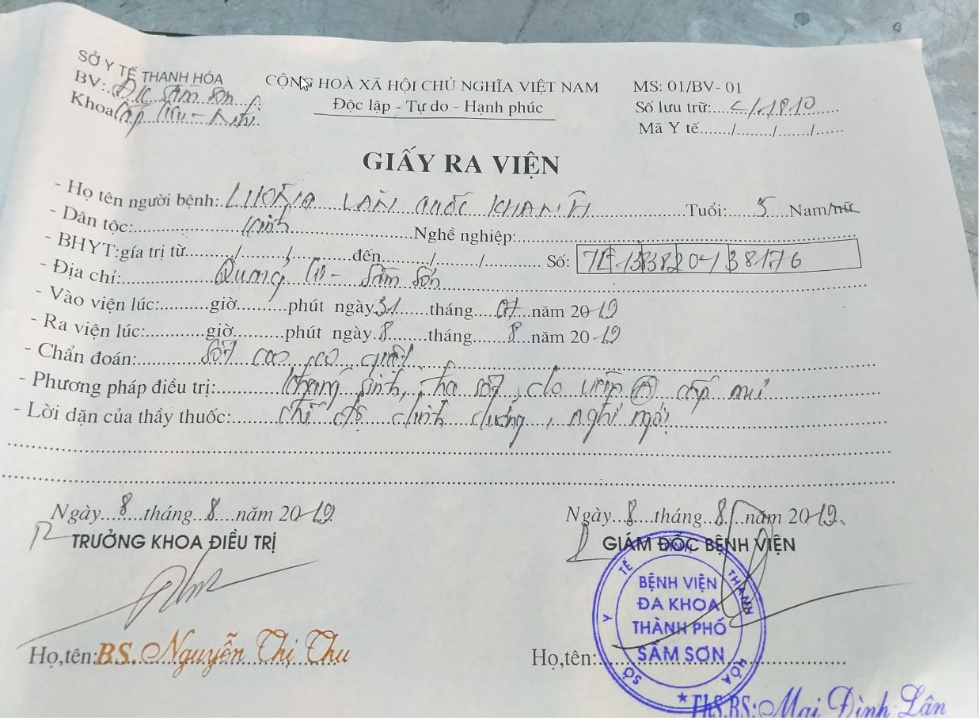 SỞ Y TẾ THANH HÓA
BV: ĐK Sầm Sơn
Khoa: Cấp Cứu - Nhi
CỘNG HOÀ XÃ HỘI CHỦ NGHĨA VIỆT NAM
Độc lập - Tự do - Hạnh phúc
MS: 01/BV- 01
Số lưu trữ:
Mã Y tế....../....../....../......
GIẤY RA VIỆN
- Họ tên người bệnh: LƯƠNG VĂN QUỐC KHÁNH Tuổi: 5 Nam/nữ
- Dân tộc: Kinh Nghề nghiệp:
- BHYT:gía trị từ....../....../......đến....../....../...... Số:
- Địa chỉ: Quảng Cư - Sầm Sơn
- Vào viện lúc:.......giờ.......phút ngày 31 tháng 07 năm 2019
- Ra viện lúc:.......giờ.......phút ngày 8 tháng 8 năm 2019
- Chẩn đoán: Sốt cao co giật
- Phương pháp điều trị: kháng sinh, hạ sốt,
- Lời dặn của thầy thuốc: chế độ dinh dưỡng, nghỉ
Ngày 8 tháng 8 năm 2019
TRƯỞNG KHOA ĐIỀU TRỊ
Họ,tên: BS. Nguyễn Thị Thu
Ngày 8 tháng 8 năm 2019.
GIÁM ĐỐC BỆNH VIỆN
SỞ Y TẾ THANH HÓA
BỆNH VIỆN
ĐA KHOA
THÀNH PHỐ
SẦM SƠN
Họ,tên:
ThS.BS: Mai Đình Lân